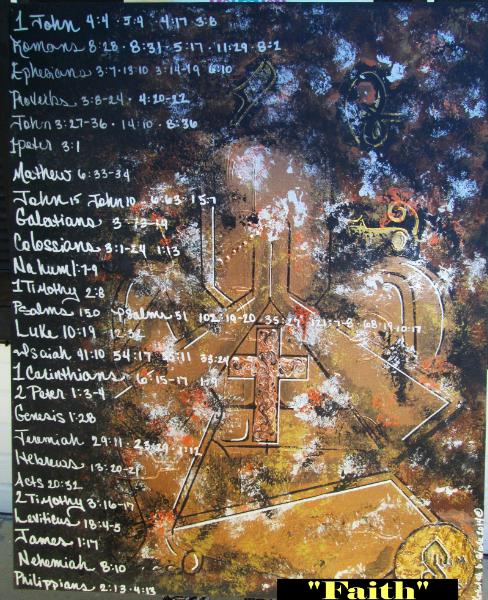 1 John 4:4 · 5:4 · 4:17 3:8
Romans 8:28 · 8:31 · 5:17 · 11:29 · 8:2
Ephesians 3:7 · 13:10 3:14-19 6:10
Proverbs 3:8-24 · 4:20-22
John 3:27-36 · 14:10 · 8:36
1peter 3:1
Mathew 6:33-34
John 15 John 10 6:63 15:7
Galatians 3:13-19
Colossians 3:1-24 1:13
Nahum 1:7-9
1 Timothy 2:8
Psalms 150 Psalms 51 102:19-20 35:27 121:7-8 68:19 10:17
Luke 10:19 12:32
Isaiah 41:10 54:17 55:11 33:24
1 Corinthians 6:15-17 1:9
2 Peter 1:3-4
Genesis 1:28
Jeremiah 29:11 · 23:29 · 1:12
Hebrews 13:20-21
Acts 20:32
2 Timothy 3:16-17
Leviticus 18:4-5
James 1:17
Nehemiah 8:10
Philippians 2:13 · 4:13
"Faith"